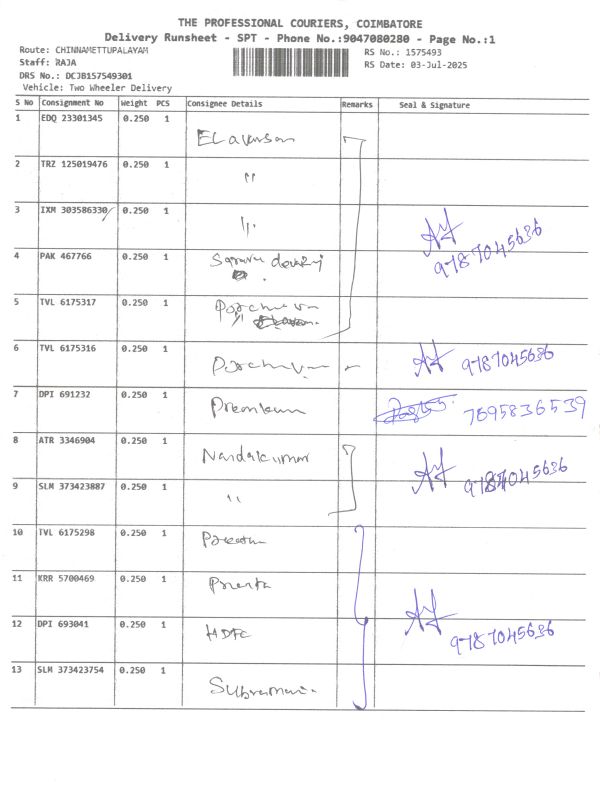 THE PROFESSIONAL COURIERS, COIMBATORE
Delivery Runsheet - SPT - Phone No.:9047080280 - Page No.:1
Route: CHINNAMETTUPALAYAM
RS No.: 1575493
Staff: RAJA
RS Date: 03-Jul-2025
DRS No.: DCJB157549301
Vehicle: Two Wheeler Delivery
S No Consignment No Weight PCS Consignee Details Remarks Seal & Signature
1 EDQ 23301345 0.250 1
2 TRZ 125019476 0.250 1 "
3 IXM 303586330 0.250 1 "
9787045636
4 PAK 467766 0.250 1
5 TVL 6175317 0.250 1
6 TVL 6175316 0.250 1 9787045636
7 DPI 691232 0.250 1 7695836539
8 ATR 3346904 0.250 1 Nandakumar
9787045636
9 SLM 373423887 0.250 1 "
10 TVL 6175298 0.250 1
11 KRR 5700469 0.250 1
12 DPI 693041 0.250 1 HDFC 9787045636
13 SLM 373423754 0.250 1